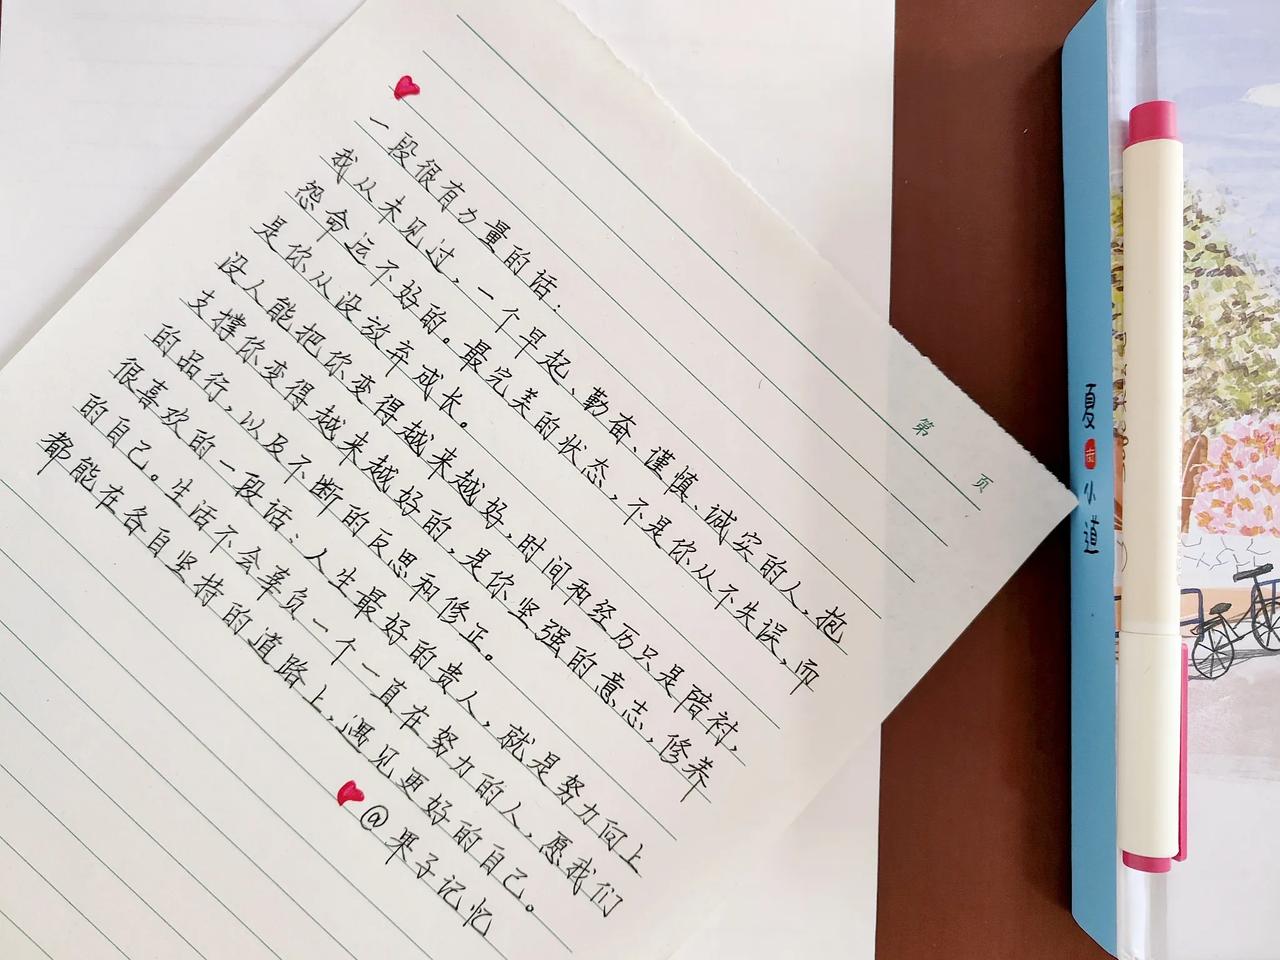 一段很有力量的话：
我从未见过，一个早起、勤奋、谨慎、诚实的人，抱
怨命运不好的。最完美的状态，不是你从不失误，而
是你从没放弃成长。
没人能把你变得越来越好，时间和经历只是陪衬，
支撑你变得越来越好的，是你坚强的意志，修养
的品行，以及不断的反思和修正。
很喜欢的一段话：人生最好的贵人，就是努力向上
的自己。生活不会辜负一个一直在努力的人，愿我们
都能在各自坚持的道路上，遇见更好的自己。
@果子记忆
第 页
夏 小道